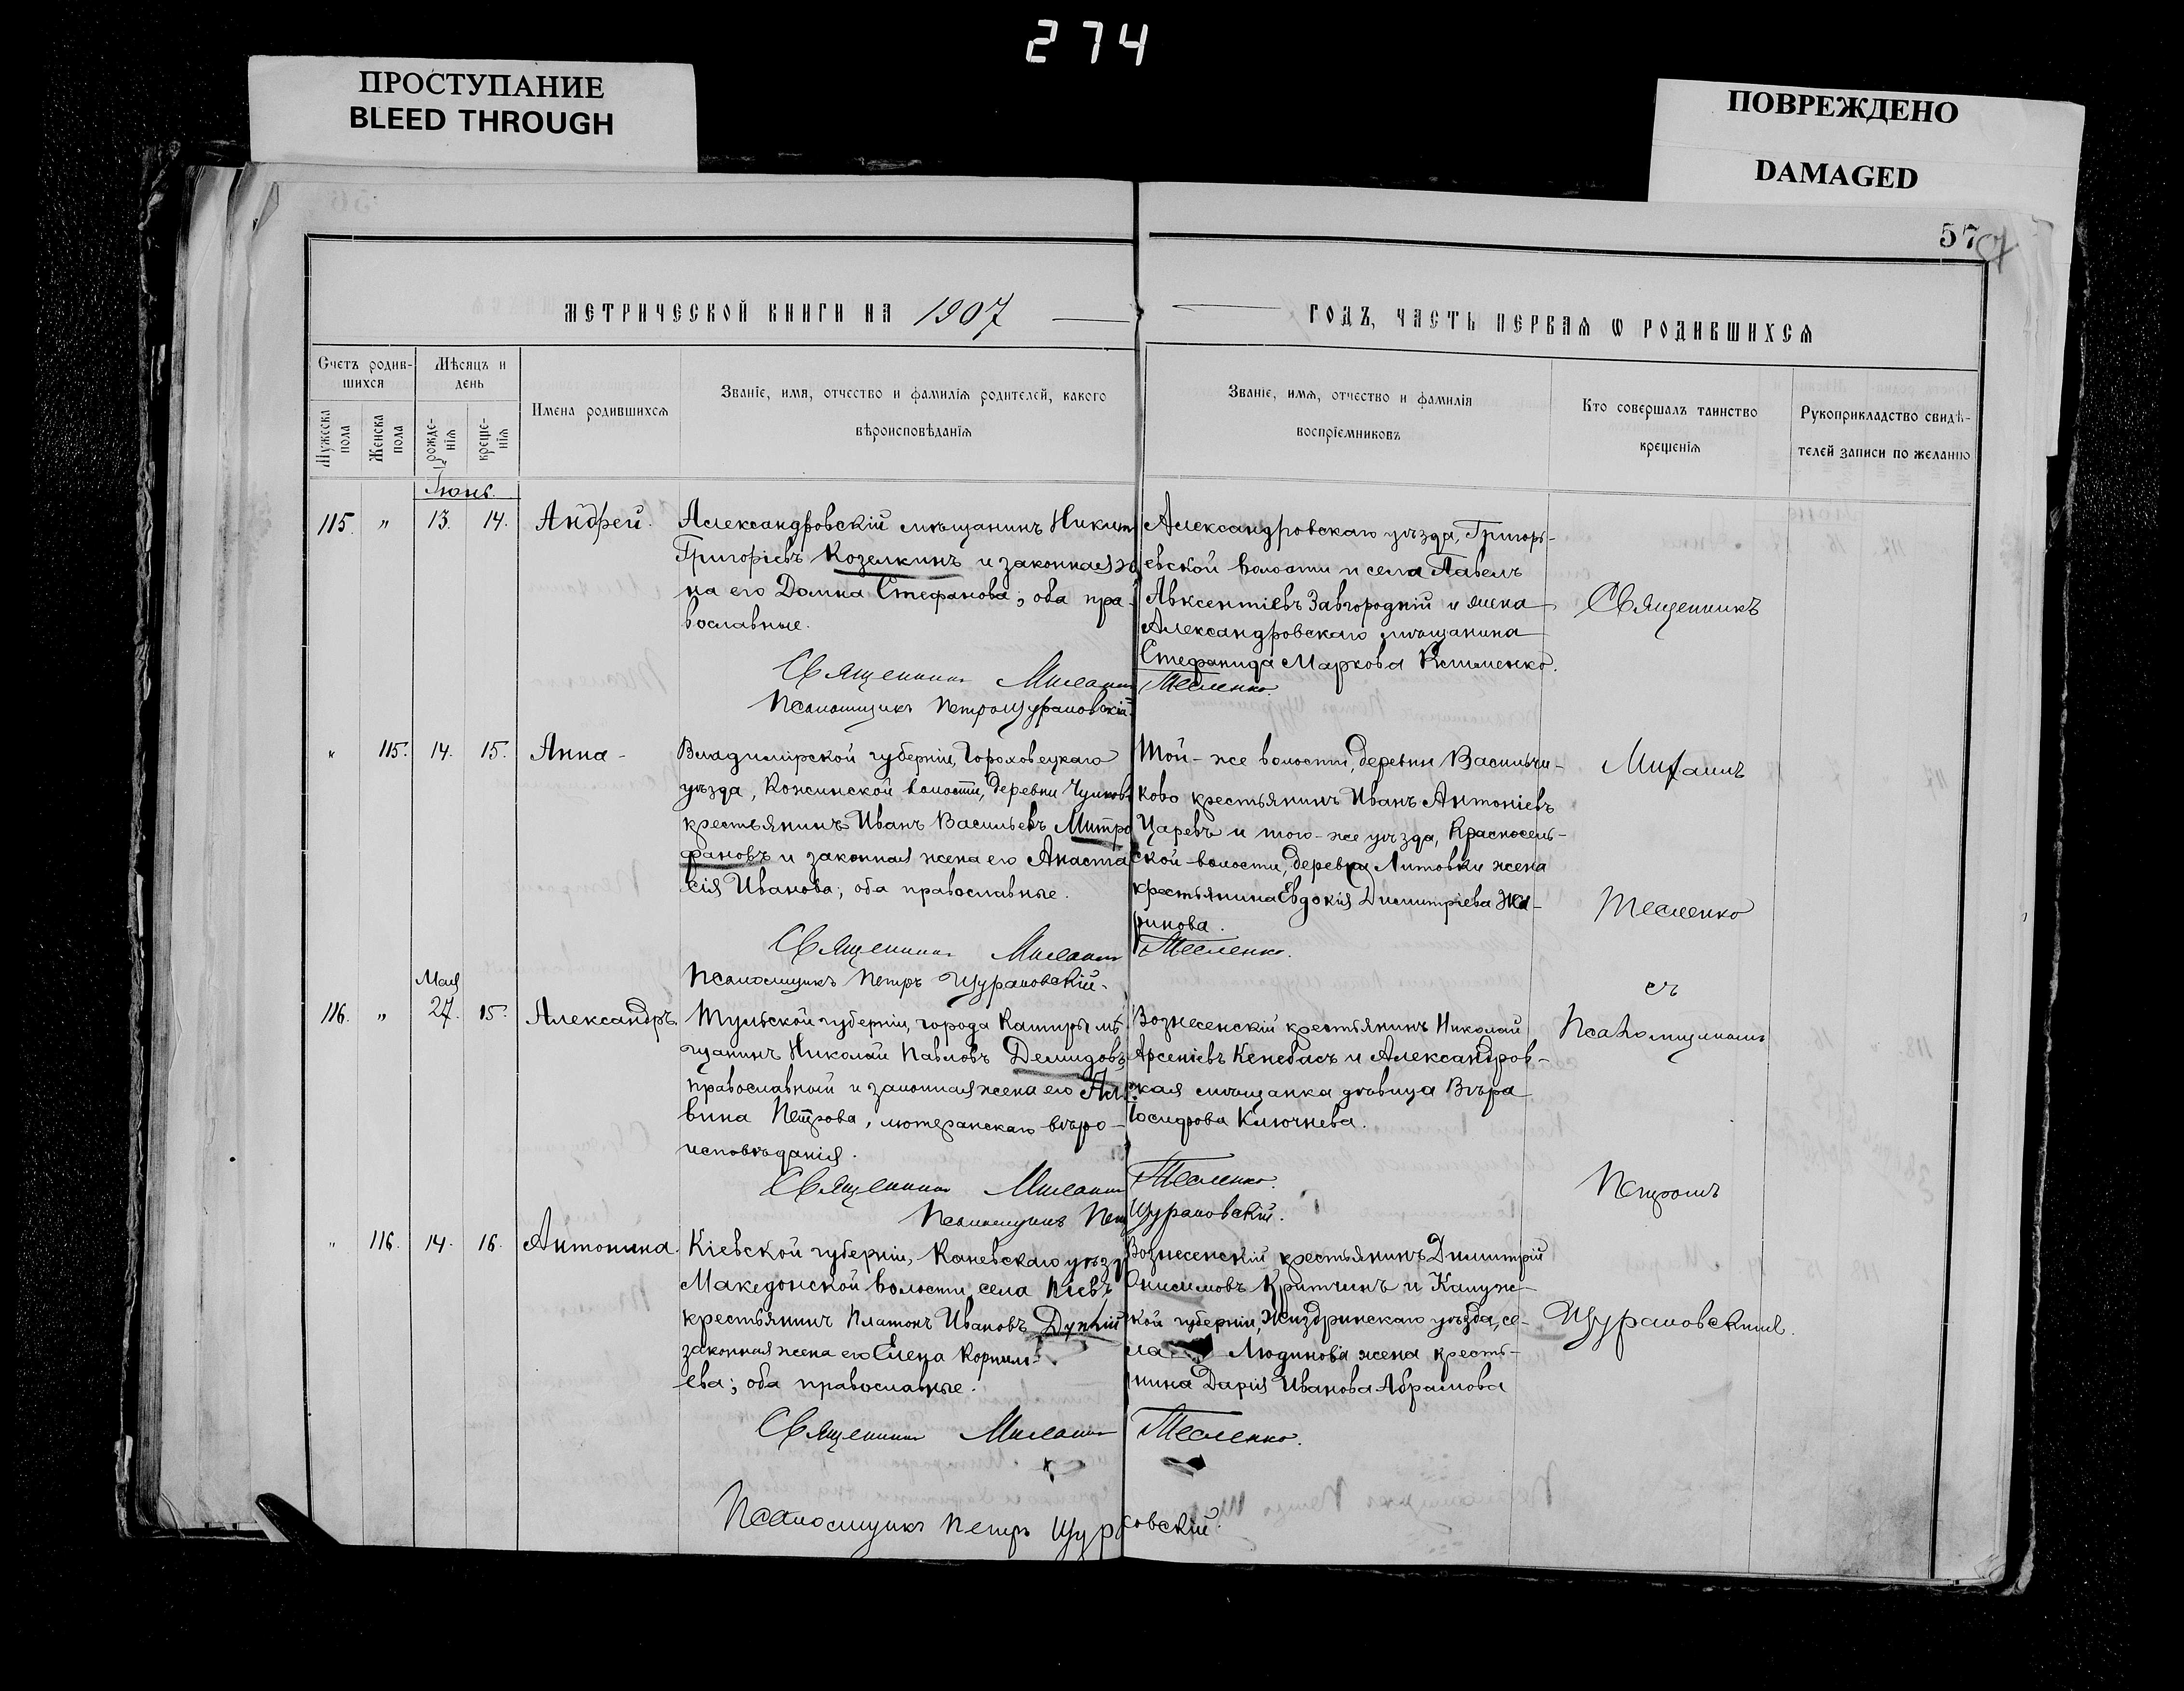 274
ПРОСТУПАНИЕ
BLEED THROUGH
ПОВРЕЖДЕНО
DAMAGED
57
МЕТРИЧЕСКОЙ КНИГИ НА 1907
ГОДЪ, ЧАСТЬ ПЕРВАЯ Ѡ РОДИВШИХСЯ
Счетъ родив-
шихся
Мѣсяцъ и
день
Мужеска
пола
Женска
пола
рожде-
нія
креще-
нія
Имена родившихся
Званіе, имя, отчество и фамилія родителей, какого
вѣроисповѣданія
Званіе, имя, отчество и фамилія
воспріемниковъ
Кто совершалъ таинство
крещенія
Рукоприкладство свидѣ-
телей записи по желанію
Іюнь.
115. " 13. 14. Андрей.
Александровскій мѣщанинъ Никит
Григоріевъ Козелкинъ и законная же
на его Домна Стефанова; оба пра-
вославные.
Священникъ Михаилъ Тесленко.
Псаломщикъ Петръ Щурановскій.
Александровскаго уѣзда, Григорь-
евской волости и села Павелъ
Авксентіевъ Завгородній и жена
Александровскаго мѣщанина
Стефанида Маркова
" 115. 14. 15. Анна -
Владимірской губерніи, Гороховецкаго
уѣзда, Кожинской волости, деревни Чулков
крестьянинъ Иванъ Васильевъ Митро
фановъ и законная жена его Анаста
сія Иванова; оба православные.
Священникъ Михаилъ Тесленко.
Псаломщикъ Петръ Щурановскій.
Той-же волости, деревни Васильчи-
ково крестьянинъ Иванъ Антоніевъ
Царевъ и того-же уѣзда, Красносель-
ской волости, деревни Литовки жена
крестьянина Евдокія Димитріева Жа-
ринова.
Мая
116. " 27. 15. Александръ.
Тульской губерніи, города Каширы мѣ
щанинъ Николай Павловъ Демидовъ
православный и законная жена его Аль
вина Петрова, лютеранскаго вѣро-
исповѣданія.
Священникъ Михаилъ Тесленко.
Псаломщикъ Петръ Щурановскій.
Вознесенскій крестьянинъ Николай
Арсеніевъ Кенебасъ и Александров-
ская мѣщанка дѣвица Вѣра
Іосифова Ключнева.
" 116. 14. 16. Антонина.
Кіевской губерніи, Каневскаго уѣзд
Македонской волости, села Піевъ
крестьянинъ Платонъ Ивановъ
законная жена его Елена Корниль-
ева; оба православные.
Священникъ Михаилъ Тесленко.
Псаломщикъ Петръ Щурановскій.
Вознесенскій крестьянинъ Димитрій
Онисимовъ Критчинъ и Калуж-
кой губерніи, Жиздринскаго уѣзда, се-
ла Людинова жена кресть-
нина Дарія Иванова Абрамова
Священникъ
Михаилъ
Тесленко
съ
Псаломщикомъ
Петромъ
Щурановскимъ.